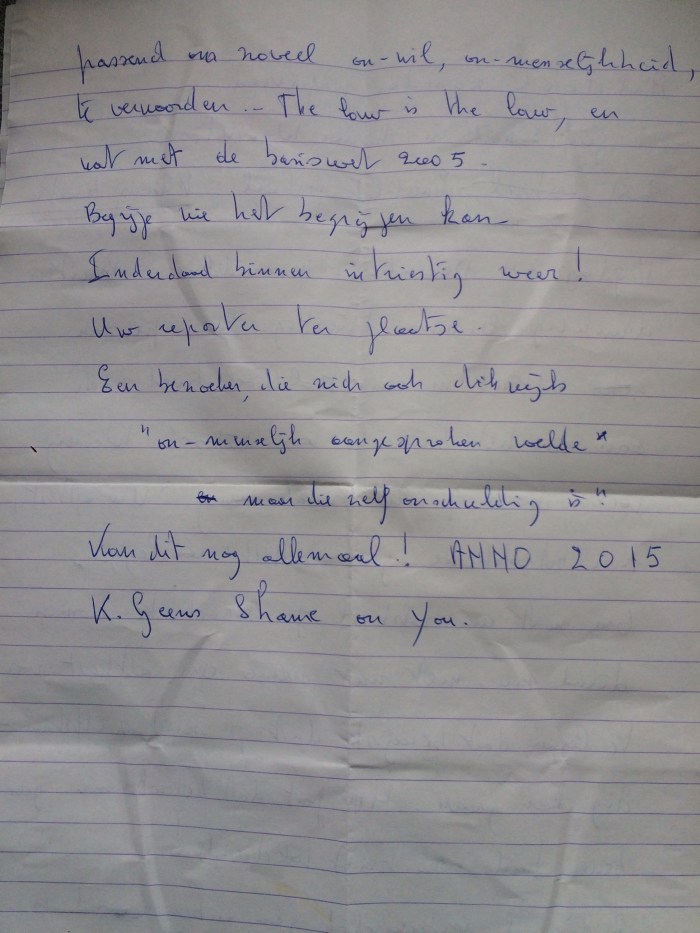 passend om zoveel on-wil, on-menselijkheid,
te verwoorden. - The law is the law, en
wat met de basiswet 2005.
Begrijpe wie het begrijpen kan -
Inderdaad binnen intriestig weer!
Uw reporter ter plaatse.
Een bezoeker, die zich ook dikwijls
"on-menselijk aangesproken voelde"
maar die zelf onschuldig is".
Kan dit nog allemaal! ANNO 2015
K. Geens Shame on You.